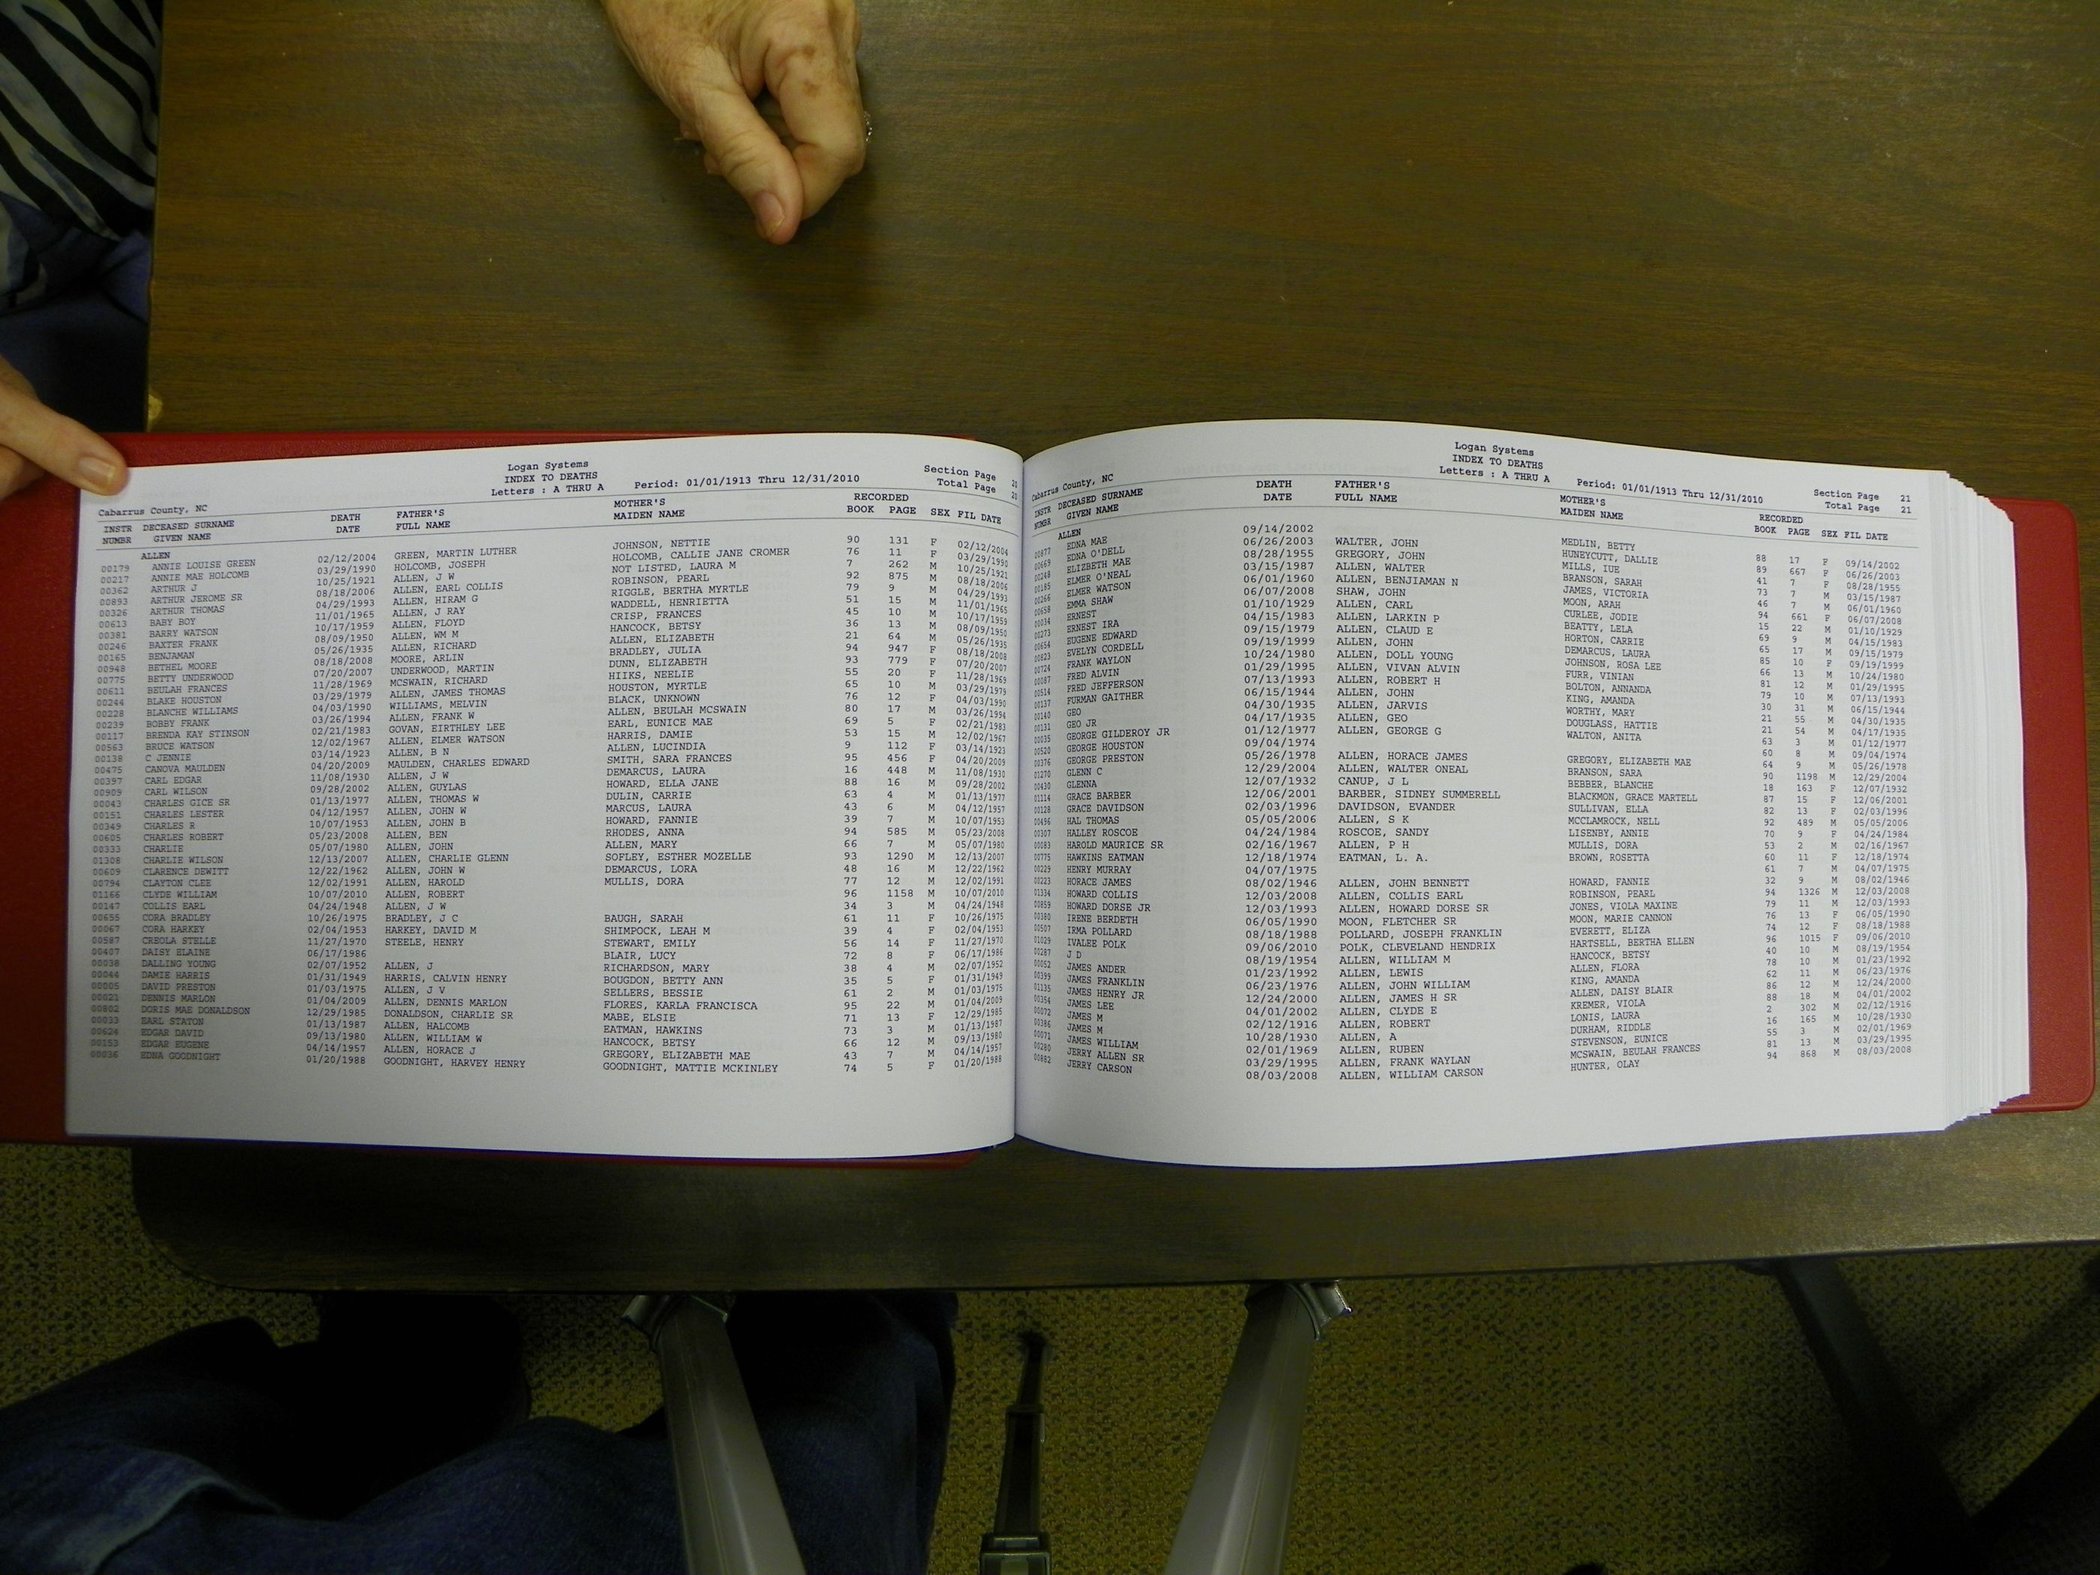 Logan Systems
INDEX TO DEATHS
Cabarrus County, NC Letters : A THRU A Period: 01/01/1913 Thru 12/31/2010 Section Page 20
Total Page 20
INSTR NUMBR DECEASED SURNAME GIVEN NAME DEATH DATE FATHER'S FULL NAME MOTHER'S MAIDEN NAME RECORDED BOOK PAGE SEX FIL DATE
ALLEN
00179 ANNIE LOUISE GREEN 02/12/2004 GREEN, MARTIN LUTHER JOHNSON, NETTIE 90 131 F 02/12/2004
00217 ANNIE MAE HOLCOMB 03/29/1990 HOLCOMB, JOSEPH HOLCOMB, CALLIE JANE CROMER 76 11 F 03/29/1990
00362 ARTHUR J 10/25/1921 ALLEN, J W NOT LISTED, LAURA M 7 262 M 10/25/1921
00893 ARTHUR JEROME SR 08/18/2006 ALLEN, EARL COLLIS ROBINSON, PEARL 92 875 M 08/18/2006
00326 ARTHUR THOMAS 04/29/1993 ALLEN, HIRAM G RIGGLE, BERTHA MYRTLE 79 9 M 04/29/1993
00613 BABY BOY 11/01/1965 ALLEN, J RAY WADDELL, HENRIETTA 51 15 M 11/01/1965
00381 BARRY WATSON 10/17/1959 ALLEN, FLOYD CRISP, FRANCES 45 10 M 10/17/1959
00246 BAXTER FRANK 08/09/1950 ALLEN, WM M HANCOCK, BETSY 36 13 M 08/09/1950
00165 BENJAMAN 05/26/1935 ALLEN, RICHARD ALLEN, ELIZABETH 21 64 M 05/26/1935
00948 BETHEL MOORE 08/18/2008 MOORE, ARLIN BRADLEY, JULIA 94 947 F 08/18/2008
00775 BETTY UNDERWOOD 07/20/2007 UNDERWOOD, MARTIN DUNN, ELIZABETH 93 779 F 07/20/2007
00611 BEULAH FRANCES 11/28/1969 MCSWAIN, RICHARD HIIKS, NEELIE 55 20 F 11/28/1969
00244 BLAKE HOUSTON 03/29/1979 ALLEN, JAMES THOMAS HOUSTON, MYRTLE 65 10 M 03/29/1979
00228 BLANCHE WILLIAMS 04/03/1990 WILLIAMS, MELVIN BLACK, UNKNOWN 76 12 F 04/03/1990
00239 BOBBY FRANK 03/26/1994 ALLEN, FRANK W ALLEN, BEULAH MCSWAIN 80 17 M 03/26/1994
00117 BRENDA KAY STINSON 02/21/1983 GOVAN, EIRTHLEY LEE EARL, EUNICE MAE 69 5 F 02/21/1983
00563 BRUCE WATSON 12/02/1967 ALLEN, ELMER WATSON HARRIS, DAMIE 53 15 M 12/02/1967
00138 C JENNIE 03/14/1923 ALLEN, B N ALLEN, LUCINDIA 9 112 F 03/14/1923
00475 CANOVA MAULDEN 04/20/2009 MAULDEN, CHARLES EDWARD SMITH, SARA FRANCES 95 456 F 04/20/2009
00397 CARL EDGAR 11/08/1930 ALLEN, J W DEMARCUS, LAURA 16 448 M 11/08/1930
00909 CARL WILSON 09/28/2002 ALLEN, GUYLAS HOWARD, ELLA JANE 88 16 M 09/28/2002
00043 CHARLES GICE SR 01/13/1977 ALLEN, THOMAS W DULIN, CARRIE 63 4 M 01/13/1977
00151 CHARLES LESTER 04/12/1957 ALLEN, JOHN W MARCUS, LAURA 43 6 M 04/12/1957
00349 CHARLES R 10/07/1953 ALLEN, JOHN B HOWARD, FANNIE 39 7 M 10/07/1953
00605 CHARLES ROBERT 05/23/2008 ALLEN, BEN RHODES, ANNA 94 585 M 05/23/2008
00333 CHARLIE 05/07/1980 ALLEN, JOHN ALLEN, MARY 66 7 M 05/07/1980
01308 CHARLIE WILSON 12/13/2007 ALLEN, CHARLIE GLENN SOFLEY, ESTHER MOZELLE 93 1290 M 12/13/2007
00609 CLARENCE DEWITT 12/22/1962 ALLEN, JOHN W DEMARCUS, LORA 48 16 M 12/22/1962
00794 CLAYTON CLEE 12/02/1991 ALLEN, HAROLD MULLIS, DORA 77 12 M 12/02/1991
01166 CLYDE WILLIAM 10/07/2010 ALLEN, ROBERT 96 1158 M 10/07/2010
00147 COLLIS EARL 04/24/1948 ALLEN, J W 34 3 M 04/24/1948
00655 CORA BRADLEY 10/26/1975 BRADLEY, J C BAUGH, SARAH 61 11 F 10/26/1975
00067 CORA HARKEY 02/04/1953 HARKEY, DAVID M SHIMPOCK, LEAH M 39 4 F 02/04/1953
00587 CREOLA STELLE 11/27/1970 STEELE, HENRY STEWART, EMILY 56 14 F 11/27/1970
00407 DAISY ELAINE 06/17/1986 BLAIR, LUCY 72 8 F 06/17/1986
00038 DALLING YOUNG 02/07/1952 ALLEN, J RICHARDSON, MARY 38 4 M 02/07/1952
00044 DAMIE HARRIS 01/31/1949 HARRIS, CALVIN HENRY BOUGDON, BETTY ANN 35 5 F 01/31/1949
00005 DAVID PRESTON 01/03/1975 ALLEN, J V SELLERS, BESSIE 61 2 M 01/03/1975
00021 DENNIS MARLON 01/04/2009 ALLEN, DENNIS MARLON FLORES, KARLA FRANCISCA 95 22 M 01/04/2009
00802 DORIS MAE DONALDSON 12/29/1985 DONALDSON, CHARLIE SR MABE, ELSIE 71 13 F 12/29/1985
00033 EARL STATON 01/13/1987 ALLEN, HALCOMB EATMAN, HAWKINS 73 3 M 01/13/1987
00624 EDGAR DAVID 09/13/1980 ALLEN, WILLIAM W HANCOCK, BETSY 66 12 M 09/13/1980
00153 EDGAR EUGENE 04/14/1957 ALLEN, HORACE J GREGORY, ELIZABETH MAE 43 7 M 04/14/1957
00036 EDNA GOODNIGHT 01/20/1988 GOODNIGHT, HARVEY HENRY GOODNIGHT, MATTIE MCKINLEY 74 5 F 01/20/1988
Logan Systems
INDEX TO DEATHS
Cabarrus County, NC Letters : A THRU A Period: 01/01/1913 Thru 12/31/2010 Section Page 21
Total Page 21
INSTR NUMBR DECEASED SURNAME GIVEN NAME DEATH DATE FATHER'S FULL NAME MOTHER'S MAIDEN NAME RECORDED BOOK PAGE SEX FIL DATE
ALLEN
00877 EDNA MAE 09/14/2002 MEDLIN, BETTY 88 17 F 09/14/2002
00669 EDNA O'DELL 06/26/2003 WALTER, JOHN HUNEYCUTT, DALLIE 89 667 F 06/26/2003
00248 ELIZBETH MAE 08/28/1955 GREGORY, JOHN MILLS, IUE 41 7 F 08/28/1955
00185 ELMER O'NEAL 03/15/1987 ALLEN, WALTER BRANSON, SARAH 73 7 M 03/15/1987
00266 ELMER WATSON 06/01/1960 ALLEN, BENJIAMAN N JAMES, VICTORIA 46 7 M 06/01/1960
00658 EMMA SHAW 06/07/2008 SHAW, JOHN MOON, ARAH 94 661 F 06/07/2008
00034 ERNEST 01/10/1929 ALLEN, CARL CURLEE, JODIE 15 22 M 01/10/1929
00273 ERNEST IRA 04/15/1983 ALLEN, LARKIN P BEATTY, LELA 69 9 M 04/15/1983
00654 EUGENE EDWARD 09/15/1979 ALLEN, CLAUD E HORTON, CARRIE 65 17 M 09/15/1979
00823 EVELYN CORDELL 09/19/1999 ALLEN, JOHN DEMARCUS, LAURA 85 10 F 09/19/1999
00724 FRANK WAYLON 10/24/1980 ALLEN, DOLL YOUNG JOHNSON, ROSA LEE 66 13 M 10/24/1980
00087 FRED ALVIN 01/29/1995 ALLEN, VIVAN ALVIN FURR, VINIAN 81 12 M 01/29/1995
00514 FRED JEFFERSON 07/13/1993 ALLEN, ROBERT H BOLTON, ANNANDA 79 10 M 07/13/1993
00137 FURMAN GAITHER 06/15/1944 ALLEN, JOHN KING, AMANDA 30 31 M 06/15/1944
00140 GEO 04/30/1935 ALLEN, JARVIS WORTHY, MARY 21 55 M 04/30/1935
00131 GEO JR 04/17/1935 ALLEN, GEO DOUGLASS, HATTIE 21 54 M 04/17/1935
00035 GEORGE GILDEROY JR 01/12/1977 ALLEN, GEORGE G WALTON, ANITA 63 3 M 01/12/1977
00520 GEORGE HOUSTON 09/04/1974 60 8 M 09/04/1974
00376 GEORGE PRESTON 05/26/1978 ALLEN, HORACE JAMES GREGORY, ELIZABETH MAE 64 9 M 05/26/1978
01270 GLENN C 12/29/2004 ALLEN, WALTER ONEAL BRANSON, SARA 90 1198 M 12/29/2004
00430 GLENNA 12/07/1932 CANUP, J L BEBBER, BLANCHE 18 163 F 12/07/1932
01114 GRACE BARBER 12/06/2001 BARBER, SIDNEY SUMMERELL BLACKMON, GRACE MARTELL 87 15 F 12/06/2001
00128 GRACE DAVIDSON 02/03/1996 DAVIDSON, EVANDER SULLIVAN, ELLA 82 13 F 02/03/1996
00496 HAL THOMAS 05/05/2006 ALLEN, S K MCCLAMROCK, NELL 92 489 M 05/05/2006
00307 HALLEY ROSCOE 04/24/1984 ROSCOE, SANDY LISENBY, ANNIE 70 9 F 04/24/1984
00083 HAROLD MAURICE SR 02/16/1967 ALLEN, P H MULLIS, DORA 53 2 M 02/16/1967
00775 HAWKINS EATMAN 12/18/1974 EATMAN, L. A. BROWN, ROSETTA 60 11 F 12/18/1974
00229 HENRY MURRAY 04/07/1975 61 7 M 04/07/1975
00223 HORACE JAMES 08/02/1946 ALLEN, JOHN BENNETT HOWARD, FANNIE 32 9 M 08/02/1946
01334 HOWARD COLLIS 12/03/2008 ALLEN, COLLIS EARL ROBINSON, PEARL 94 1326 M 12/03/2008
00859 HOWARD DORSE JR 12/03/1993 ALLEN, HOWARD DORSE SR JONES, VIOLA MAXINE 79 11 M 12/03/1993
00380 IRENE BERDETH 06/05/1990 MOON, FLETCHER SR MOON, MARIE CANNON 76 13 F 06/05/1990
00507 IRMA POLLARD 08/18/1988 POLLARD, JOSEPH FRANKLIN EVERETT, ELIZA 74 12 F 08/18/1988
01029 IVALEE POLK 09/06/2010 POLK, CLEVELAND HENDRIX HARTSELL, BERTHA ELLEN 96 1015 F 09/06/2010
00287 J D 08/19/1954 ALLEN, WILLIAM M HANCOCK, BETSY 40 10 M 08/19/1954
00052 JAMES ANDER 01/23/1992 ALLEN, LEWIS ALLEN, FLORA 78 10 M 01/23/1992
00399 JAMES FRANKLIN 06/23/1976 ALLEN, JOHN WILLIAM KING, AMANDA 62 11 M 06/23/1976
01135 JAMES HENRY JR 12/24/2000 ALLEN, JAMES H SR ALLEN, DAISY BLAIR 86 12 M 12/24/2000
00354 JAMES LEE 04/01/2002 ALLEN, CLYDE E KREMER, VIOLA 88 18 M 04/01/2002
00072 JAMES M 02/12/1916 ALLEN, ROBERT LONIS, LAURA 2 302 M 02/12/1916
00386 JAMES M 10/28/1930 ALLEN, A DURHAM, RIDDLE 16 165 M 10/28/1930
00071 JAMES WILLIAM 02/01/1969 ALLEN, RUBEN STEVENSON, EUNICE 55 3 M 02/01/1969
00280 JERRY ALLEN SR 03/29/1995 ALLEN, FRANK WAYLAN MCSWAIN, BEULAH FRANCES 81 13 M 03/29/1995
00882 JERRY CARSON 08/03/2008 ALLEN, WILLIAM CARSON HUNTER, OLAY 94 868 M 08/03/2008